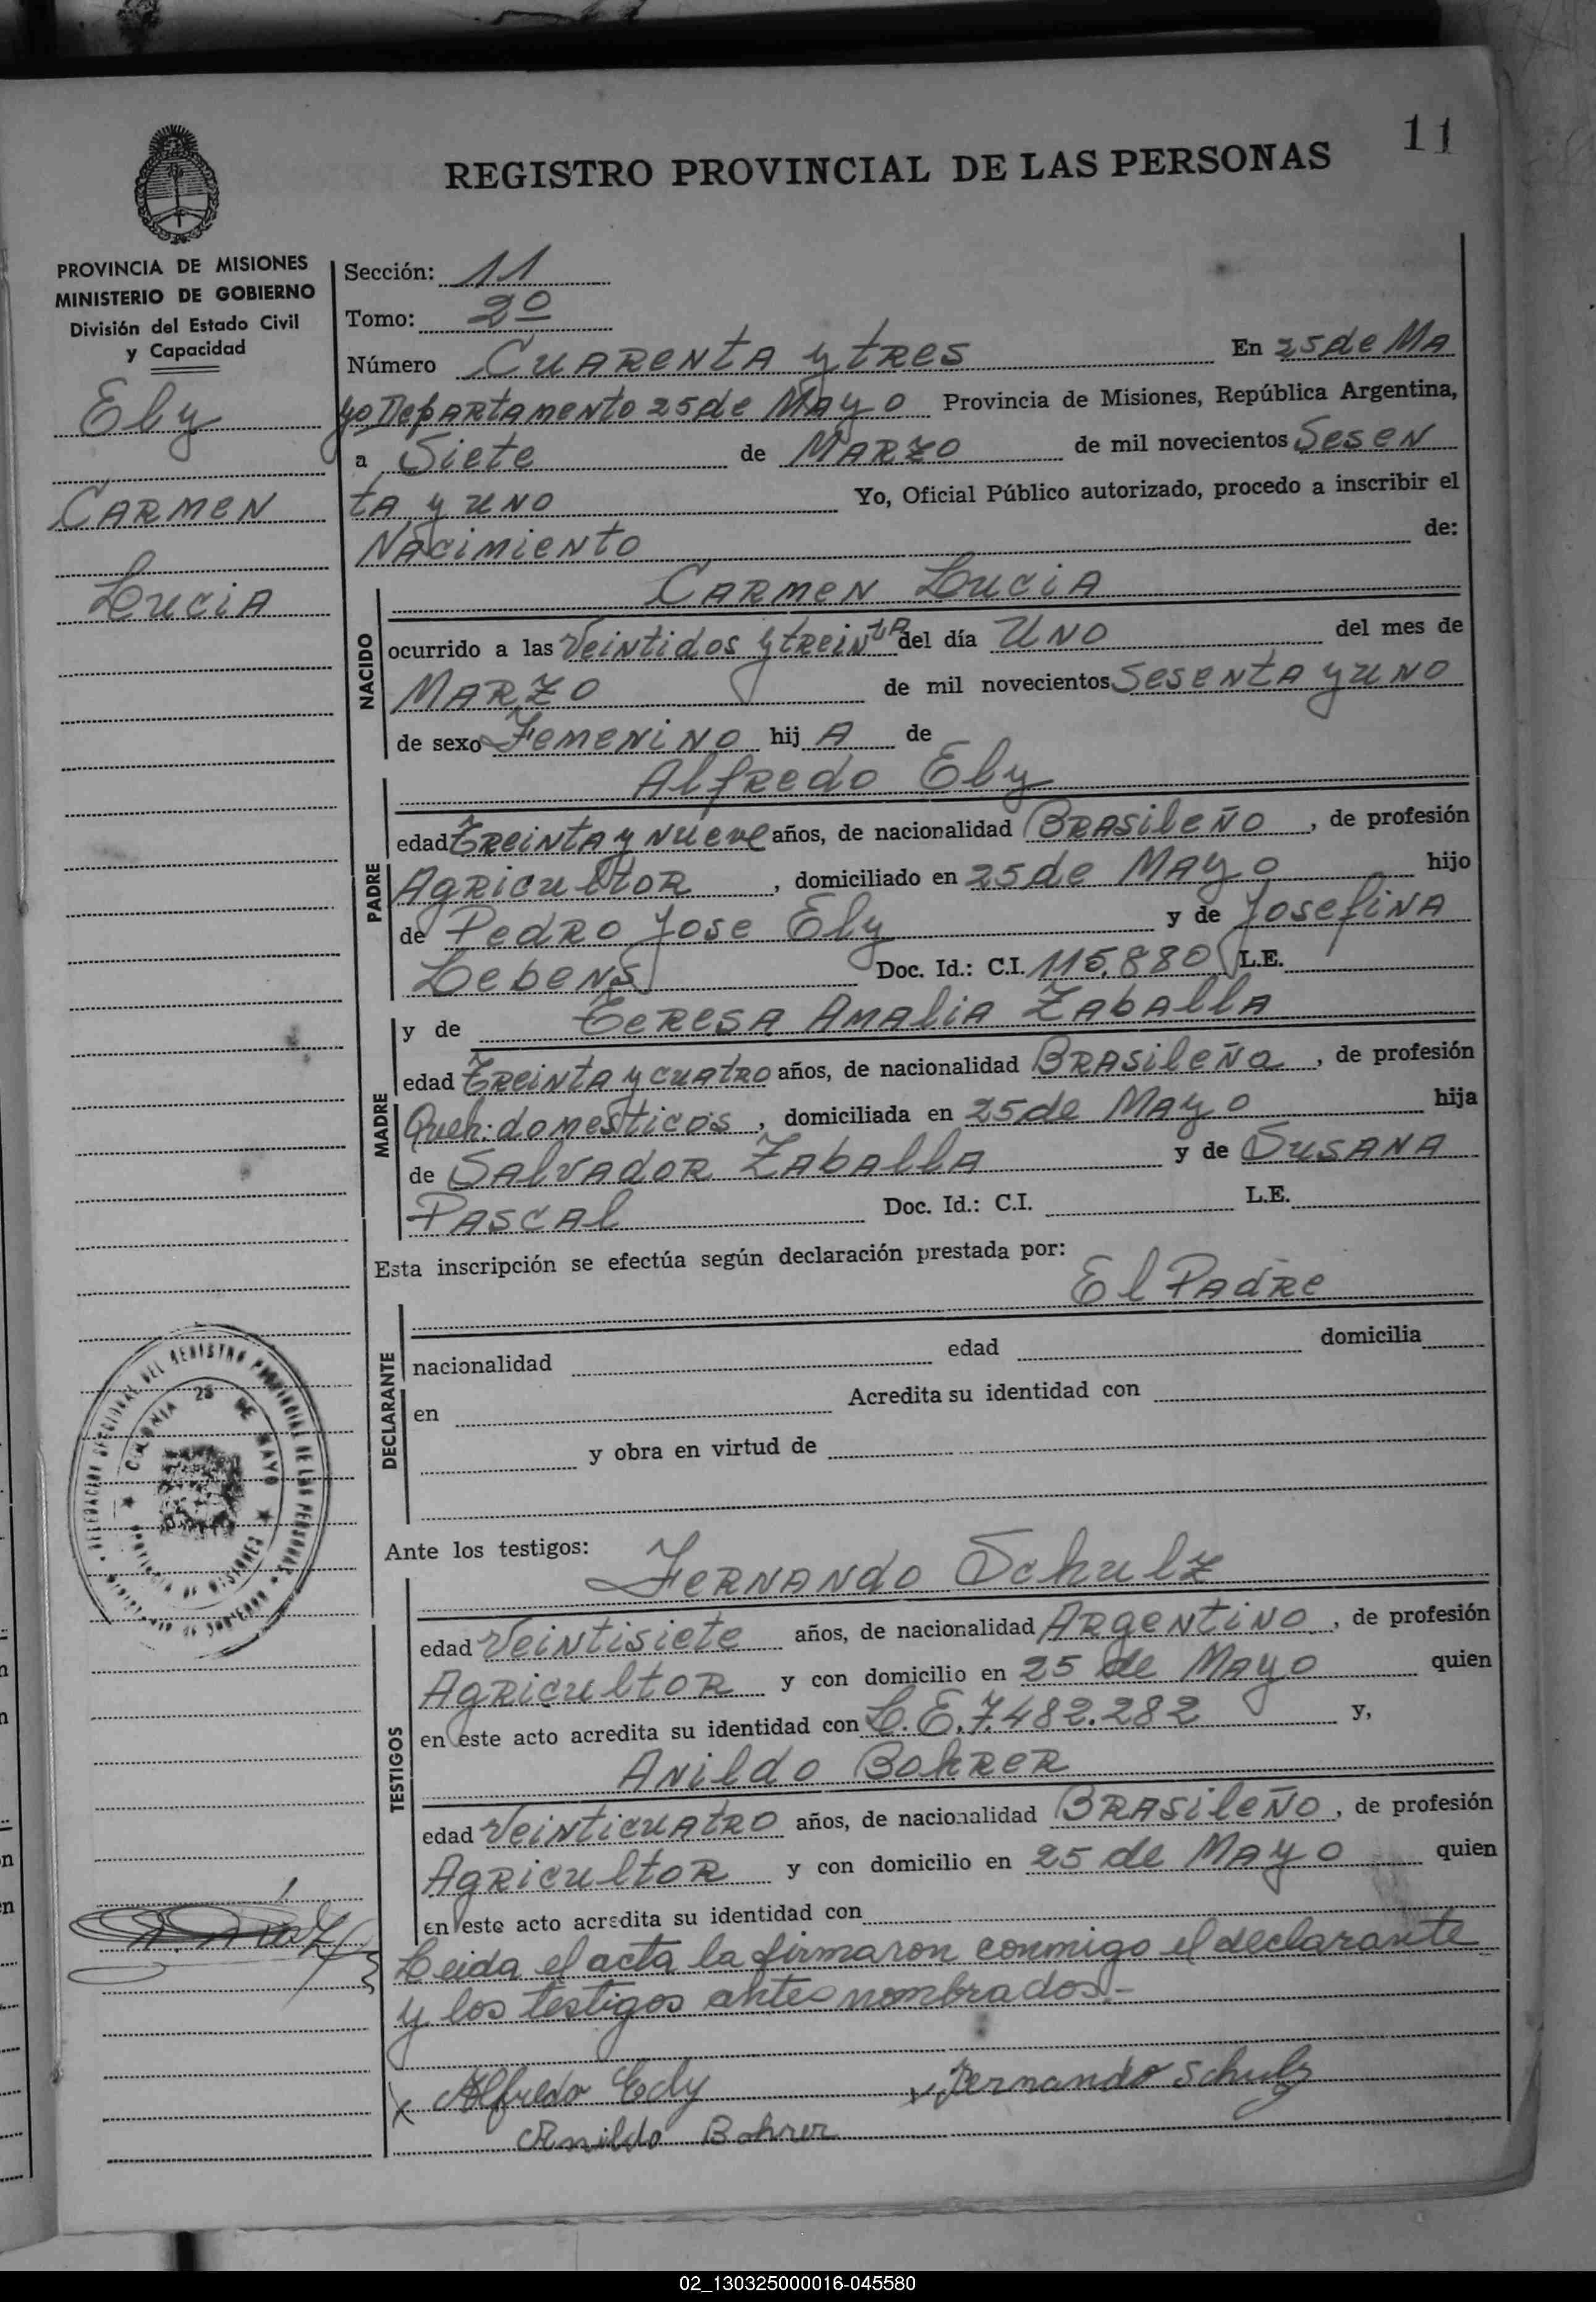 11
REGISTRO PROVINCIAL DE LAS PERSONAS
PROVINCIA DE MISIONES
MINISTERIO DE GOBIERNO
División del Estado Civil
y Capacidad
Ely
Carmen
Lucia
Sección: 11
Tomo: 2º
Número Cuarenta y tres En 25 de Ma
yo Departamento 25 de Mayo Provincia de Misiones, República Argentina,
a Siete de Marzo de mil novecientos Sesen
ta y uno Yo, Oficial Público autorizado, procedo a inscribir el
Nacimiento de:
NACIDO
Carmen Lucia
ocurrido a las Veintidos y treinta del día Uno del mes de
Marzo de mil novecientos Sesenta y uno
de sexo Femenino hij A de
PADRE
Alfredo Ely
edad Treinta y nueve años, de nacionalidad Brasileño, de profesión
Agricultor, domiciliado en 25 de Mayo hijo
de Pedro Jose Ely y de Josefina
Lebens Doc. Id.: C.I. 115.880 L.E.
MADRE
y de Teresa Amalia Zaballa
edad Treinta y cuatro años, de nacionalidad Brasileña, de profesión
Queh. domesticos, domiciliada en 25 de Mayo hija
de Salvador Zaballa y de Susana
Pascal Doc. Id.: C.I. L.E.
Esta inscripción se efectúa según declaración prestada por:
El Padre
DECLARANTE
nacionalidad edad domicilia
en Acredita su identidad con
y obra en virtud de
Ante los testigos:
TESTIGOS
Fernando Schulz
edad Veintisiete años, de nacionalidad Argentino, de profesión
Agricultor y con domicilio en 25 de Mayo quien
en este acto acredita su identidad con L.E. 7.482.282 y,
Anildo Bohrer
edad Veinticuatro años, de nacionalidad Brasileño, de profesión
Agricultor y con domicilio en 25 de Mayo quien
en este acto acredita su identidad con
Leida el acta la firmaron conmigo el declarante
y los testigos antes nombrados.-
x Alfredo Ely
x Fernando Schulz
Anildo Bohrer
DEL REGISTRO PROVINCIAL DE LAS PERSONAS
COLONIA 25 DE MAYO
PROVINCIA DE MISIONES
02_130325000016-045580